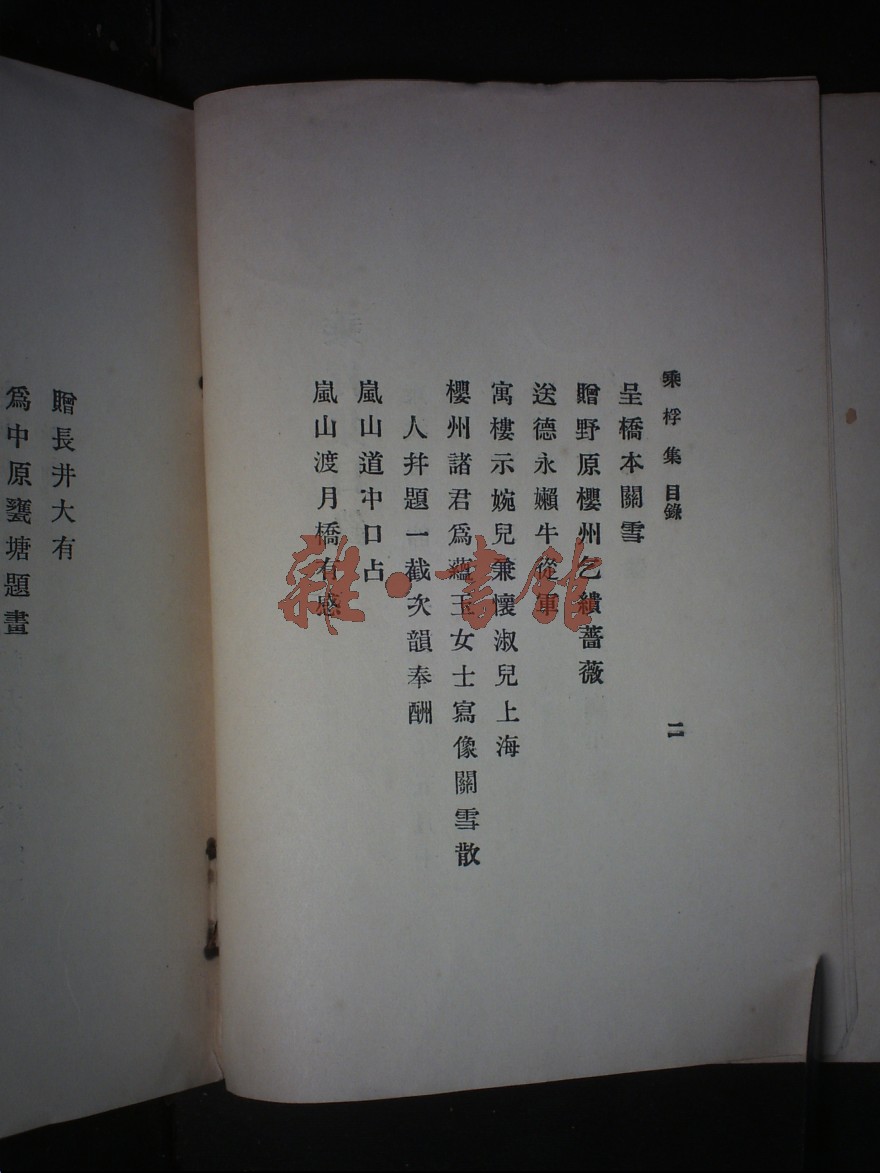 乘桴集 目錄
二
呈橋本關雪
贈野原櫻州乞繢薔薇
送德永嬾牛從軍
寓樓示婉兒兼懷淑兒上海
櫻州諸君爲蘊玉女士寫像關雪散
人幷題一截次韻奉酬
嵐山道中口占
嵐山渡月橋有感
贈長井大有
爲中原甕塘題畫
雜·書館